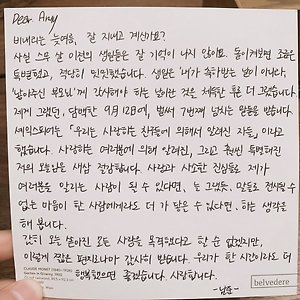 Dear Army
비내리는 늦여름, 잘 지내고 계신가요?
사실 스무 살 이전의 생일들은 잘 기억이 나지 않아요. 돌이켜보면 조금은
특별했고, 적당히 밋밋했습니다. 생일은 '내가 축하받는 날이 아니라,
낳아주신 부모님'께 감사해야 하는 날이란 것을 체득한 뒤엔 더 그랬습니다.
제게 그랬던, 담백한 9월 12일에, 벌써 7번째 넘치는 마음을 받습니다.
셰익스피어는 「우리는 사랑하는 친구들에 의해서 알려진 자들」 이라고
했습니다. 사랑하는 여러분에 의해 알려진, 그리고 훨씬 특별해진
저의 오늘임을 새삼 절감합니다. 사람과 사소한 진심들로 제가
여러분을 알리는 사람이 될 수 있다면, 또 그럼에도 말로는 전해질 수
없는 마음이 한 사람에게라도 더 가 닿을 수 있다면, 하는 생각을
해 봅니다.
감히 오늘 쏟아진 모든 사랑을 목격했다고 할 순 없겠지만,
이렇게 짧은 편지로나마 감사히 받습니다. 우리가 한 시간이라도 더
행복했으면 좋겠습니다. 사랑합니다.
-남준-
CLAUDE MONET (1840–1926)
belvedere